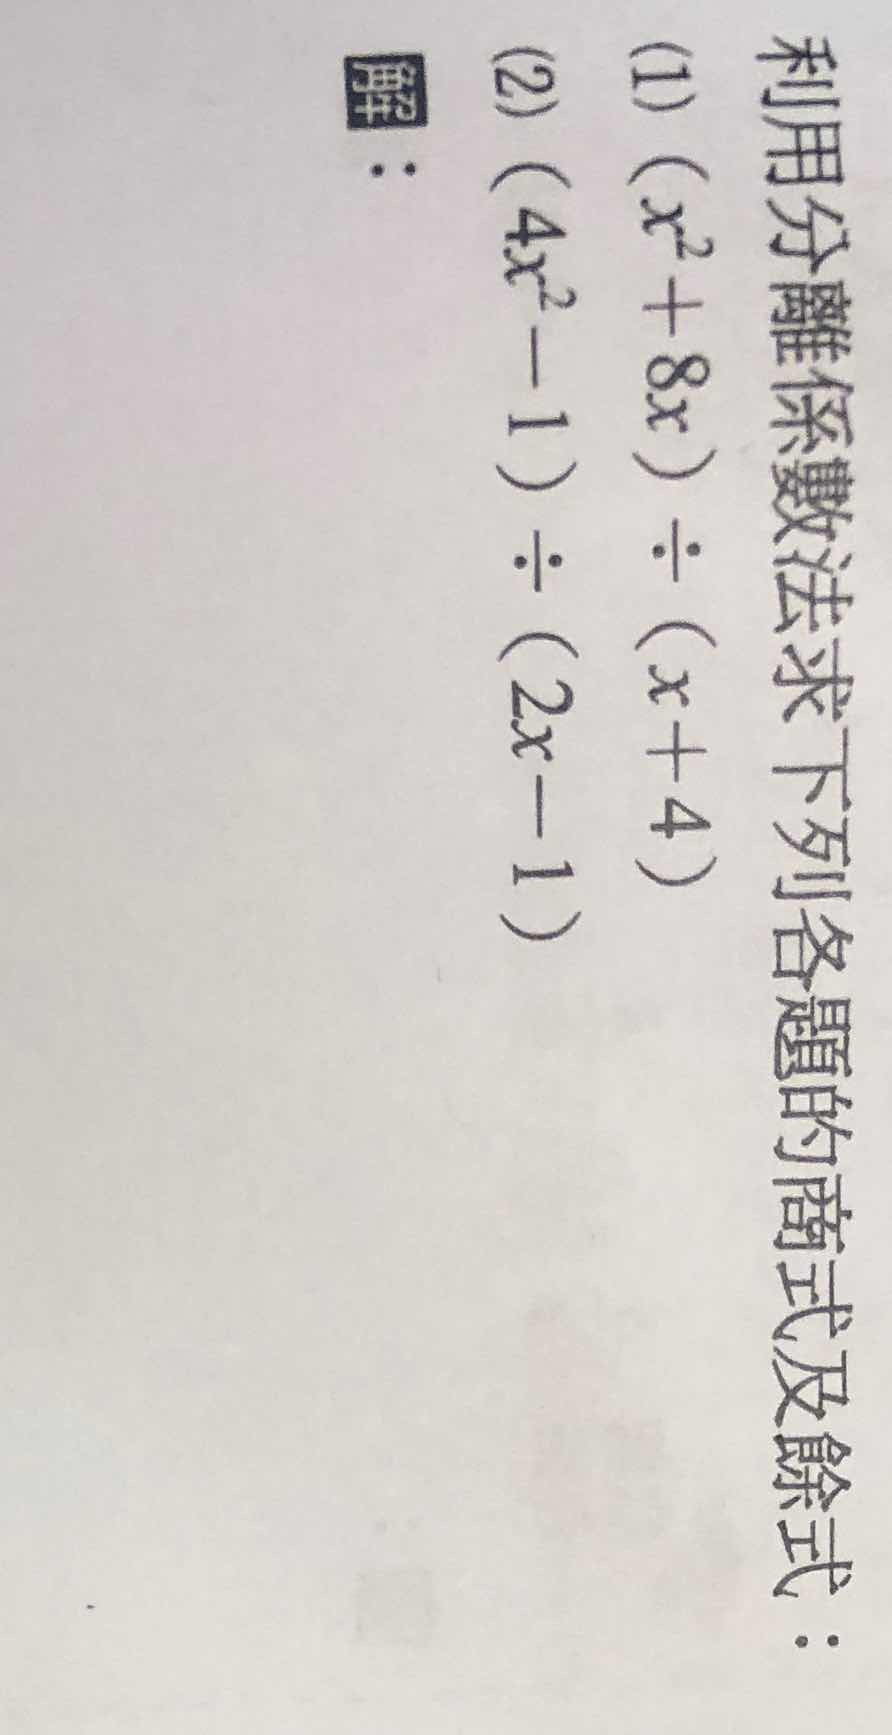 利用分離係數法求下列各題的商式及餘式：
(1)（x²＋8x）÷（x＋4）
(2)（4x²－1）÷（2x－1）
解：